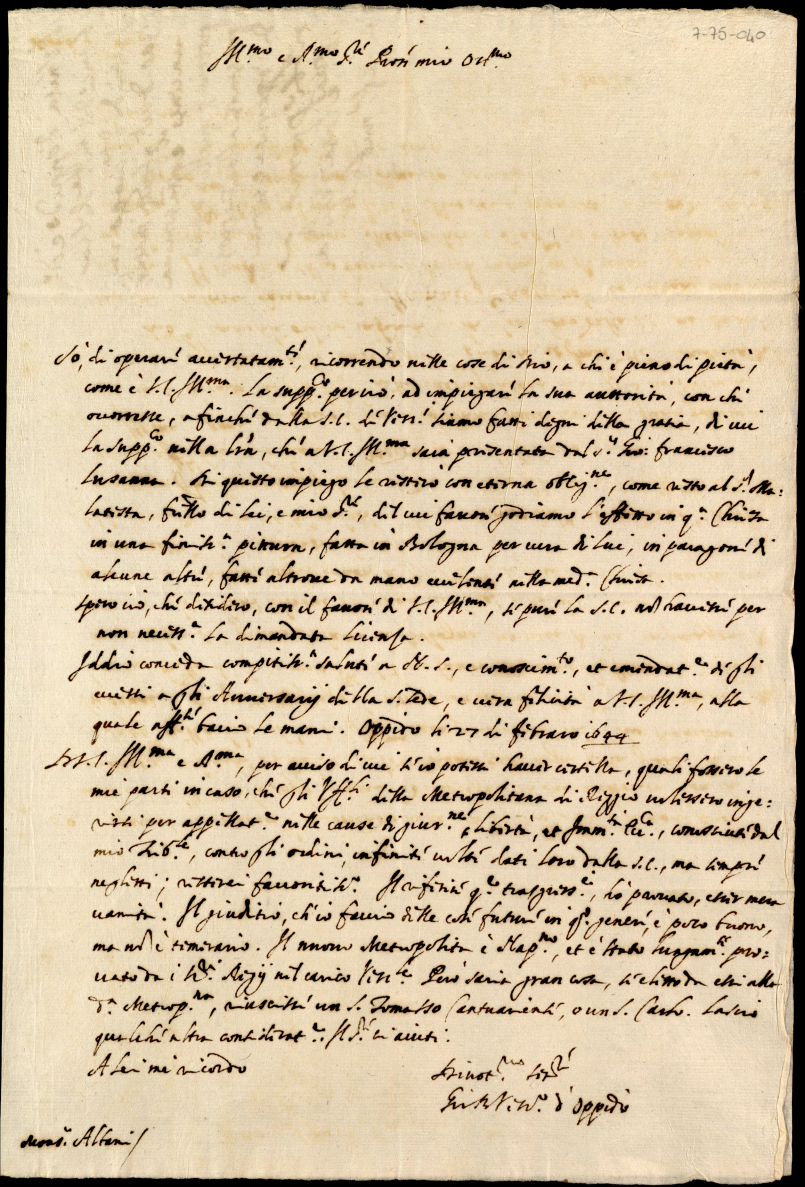 7-75-040
Ill.mo e R.mo S.re Pron mio Oss.mo
Sò, di operare accertatam.te, ricorrendo nelle cose di Dio, a chi è pieno di pietà,
come è V.S. Ill.ma. La supp.co perciò, ad impiegare la sua auttorità, con chi
occorresse, afinche dalla S.C. di Vesc.i siamo fatti degni della gratia, di cui
la supp.co nella lrã, che a V.S. Ill.ma sarà presentata dal S.r Gio: Francesco
Lusanna. Di questo impiego le resterò con eterna oblig.ne, come resto al S.r Ma=
latesta, frãllo di Lei, e mio S.re, del cui favore godiamo l'effetto in q.a Chiesa
in una finiss.a pittura, fatta in Bologna per cura di lui, in paragone di
alcune altre, fatte altrove da mano eccellente nella med.a Chiesa.
Spero ciò, che desidero, con il favore di V.S. Ill.ma, se pure la S.C. nõ havesse per
non necess.a la dimandata licenza.
Iddio conceda compitiss.a salute a N.S., e conoscim.to, et emendat.e de gli
eccessi a gli Aversarij della S. Sede, e vera felicità a V.S. Ill.ma, alla
quale aff.te bacio le mani. Oppido li 27 di febraro 1644
Di V.S. Ill.ma e R.ma, per aviso di cui s'io potessi haver certezza, quali fossero le
mie parti in caso, che gli Uff.li della Metropolitana di Reggio volessero inge=
rirsi per appellat.e nelle cause di giur.ne, libertà, et Imm.tà Ecc.a, conosciute dal
mio Trib.le, contro gli ordini, infinite volte dati loro dalla S.C., ma sempre
negletti; resterei favoritiss.o. Il riferire q.e trasgress.i, hò provato, esser mera
vanità. Il giuditio, ch'io faccio delle cose future in q.o genere, è poco buono,
ma nõ è temerario. Il nuovo Metropolita è Nap.no, et è stato lungam.te pro=
vato da i Regij nel carico Però saria gran cosa, se eletto da essi alla
d.a Metrop.na, riuscisse un S. Tomasso Cantuariense, o un S. Carlo. Lascio
qualche altra considerat.e. Il S.re ci aiuti.
A Lei mi ricordo
Divot.mo Ser.re
Gio: B. Vesc.o d'Oppido
Mons.r Altani